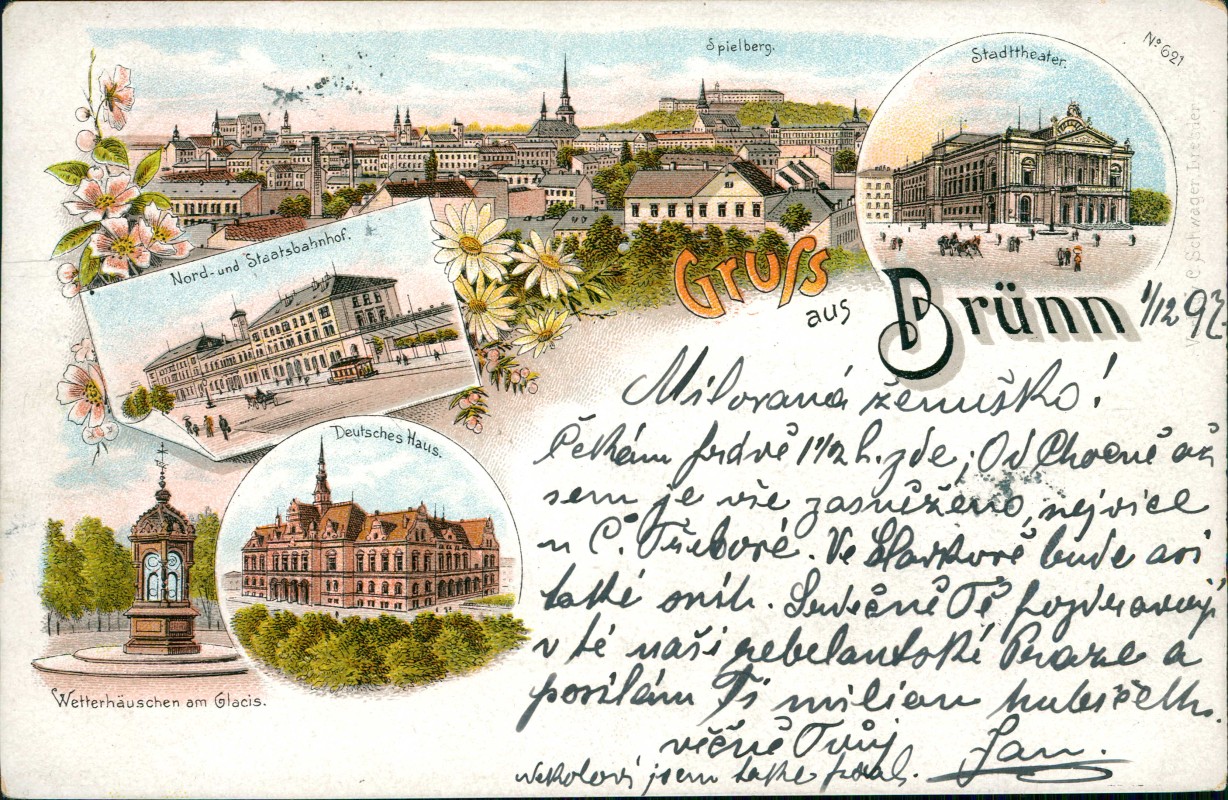 Spielberg.
Stadttheater.
No 621
Nord- und Staatsbahnhof.
Gruss
aus
Brünn
1/12 97
Deutsches Haus.
Wetterhäuschen am Glacis.
Milovaná ženuško!
Čekám právě 1 1/2 h. zde; Od Chocně až
sem je vše zasněženo, nejvíce
u Č. Třebové. Ve Slavkově bude asi
také sníh. Srdečně Tě pozdravuji
v té naší nebelantské Praze a
posílám Ti milion hubiček.
věčně Tvůj
Jan.
jsem také psal.
C. Schwager, Dresden